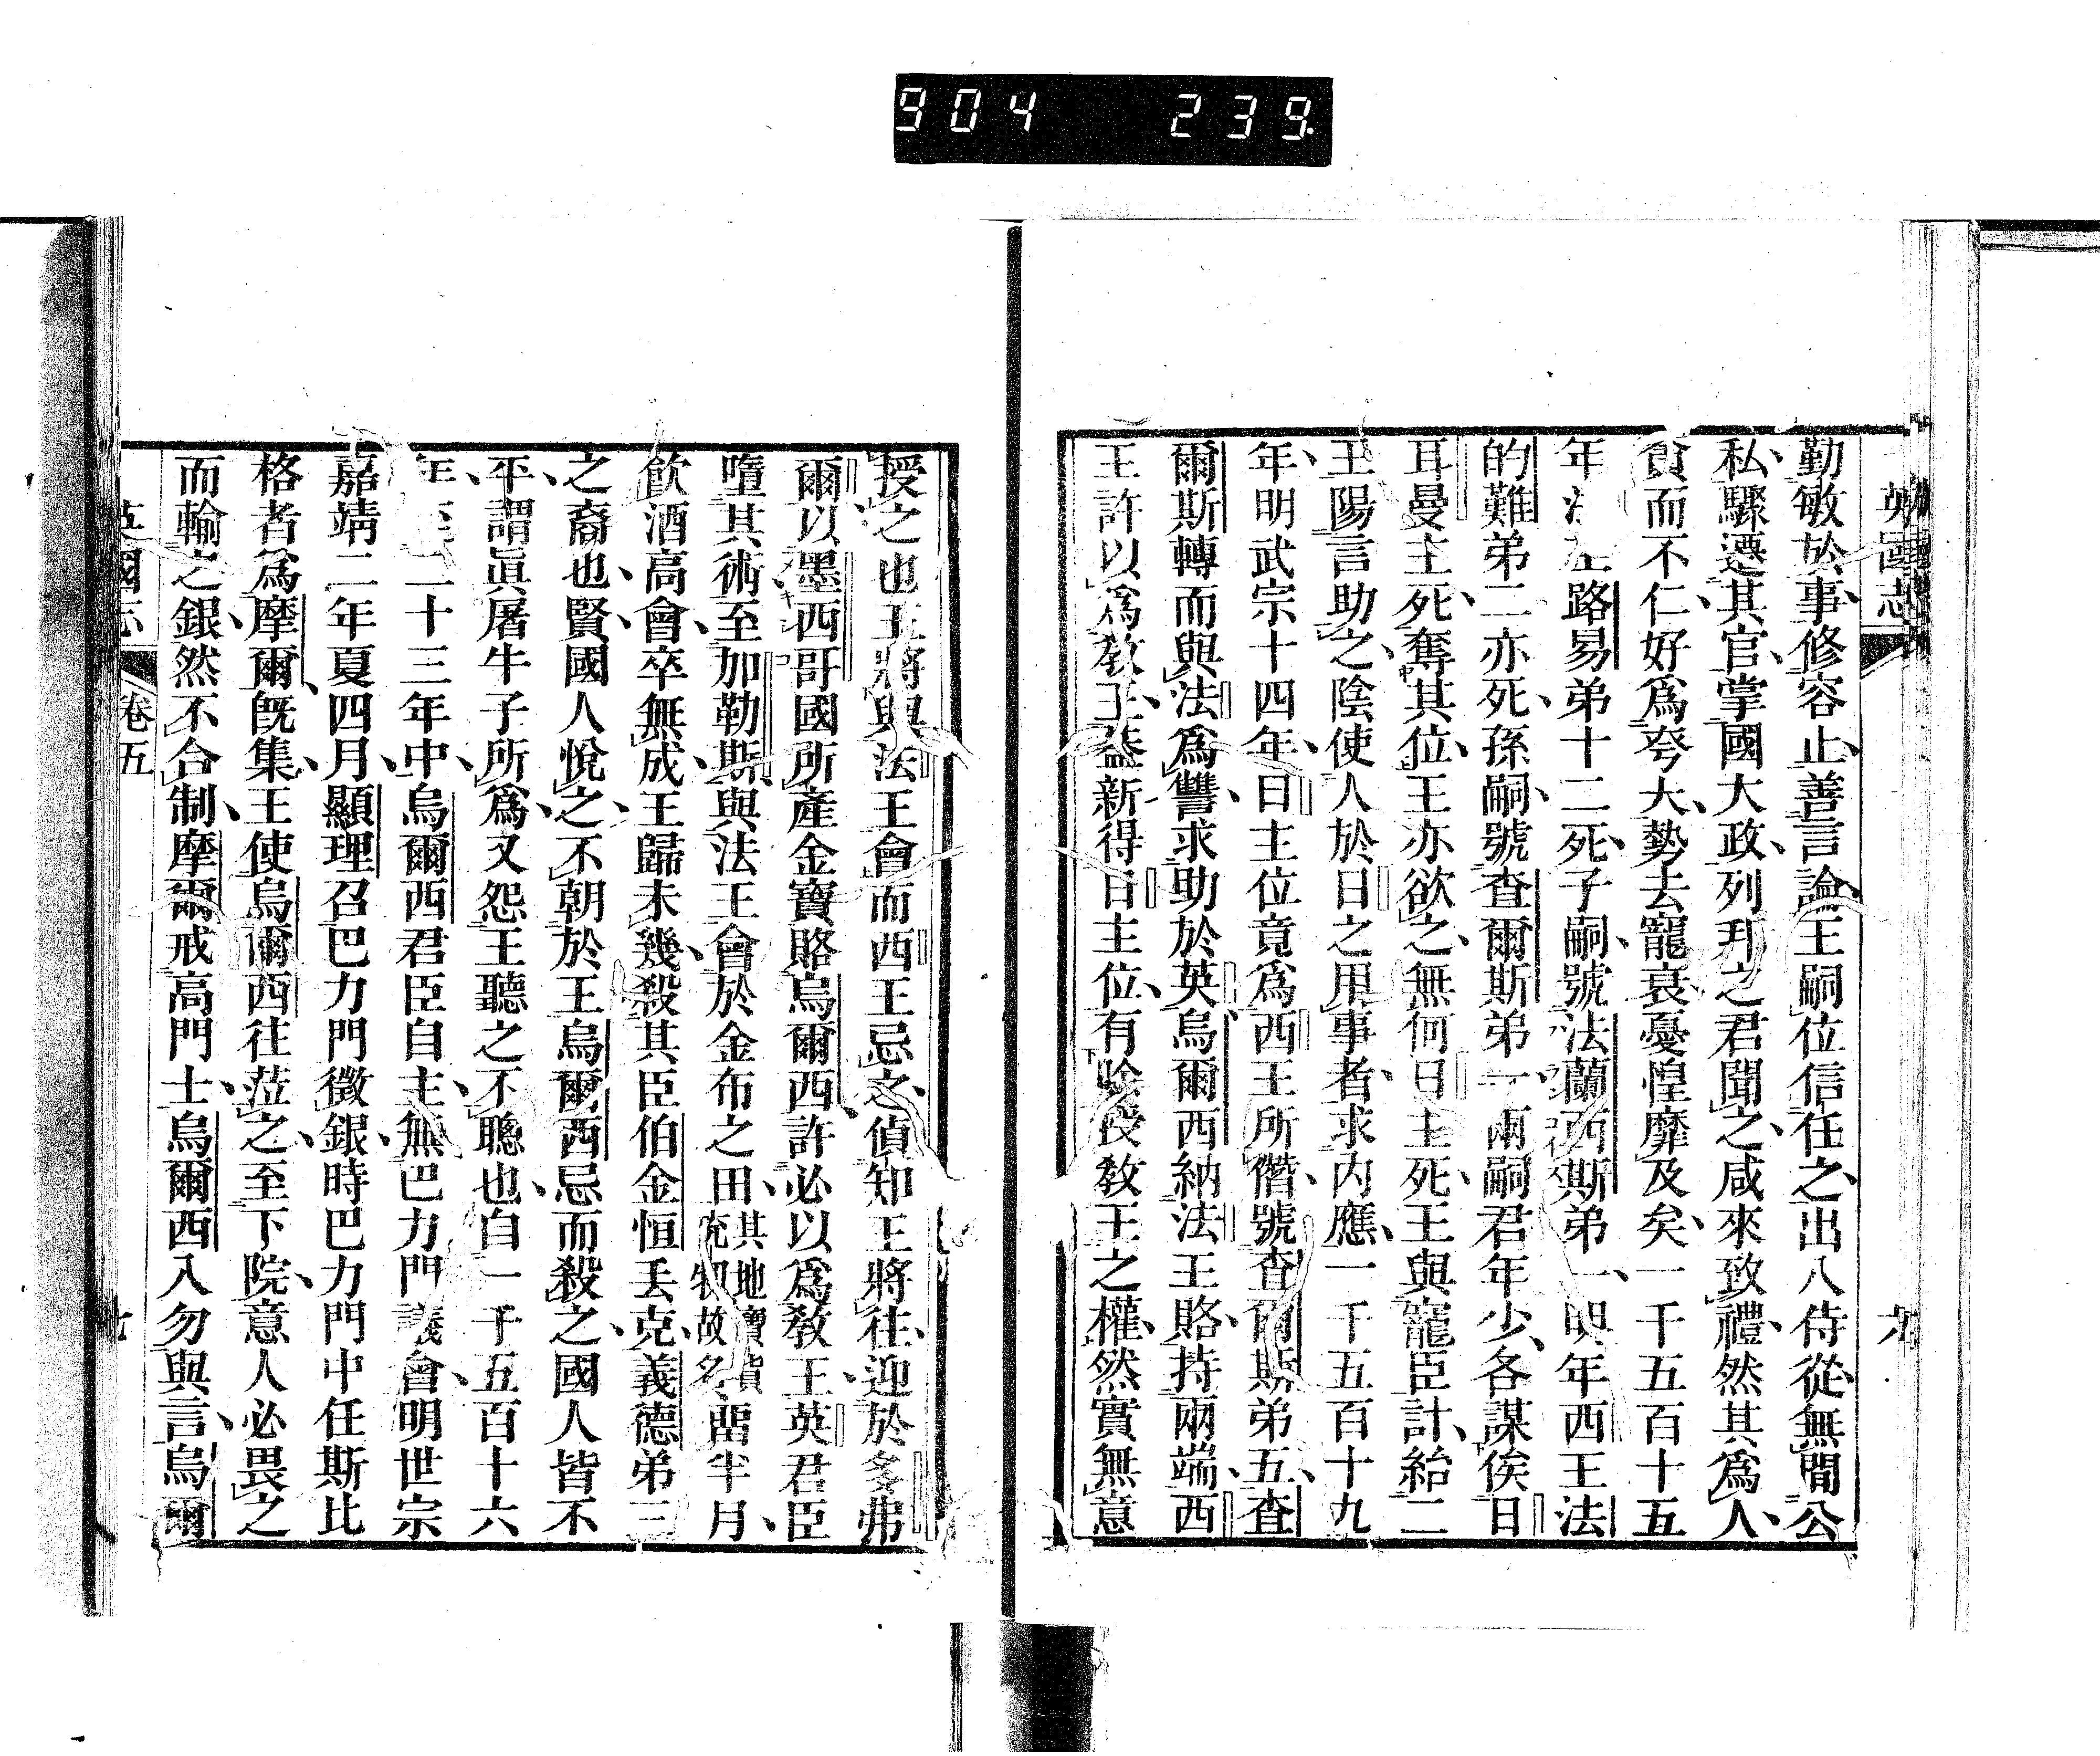 904 239
英國志
勤敏於事修容止善言論王嗣位信任之出入侍從無間公
私驟遷其官掌國大政列邦之君聞之咸來致禮然其爲人
貪而不仁好爲夸大勢去寵衰憂惶靡及矣一千五百十五
年法王路易弟十二死子嗣號法蘭西斯弟一明年西王法
的難弟二亦死孫嗣號查爾斯弟一兩嗣君年少各謀俟日
耳曼主死奪其位王亦欲之無何日主死王與寵臣計紿二
王陽言助之陰使人於日之用事者求內應一千五百十九
年明武宗十四年日主位竟爲西王所僭號查爾斯弟五查
爾斯轉而與法爲讐求助於英烏爾西納法王賂持兩端西
王許以爲敎王益新得日主位有陰授敎王之權然實無意
授之也王將與法王會而西王忌之偵知王將往迎於多弗
爾以墨西哥國所產金寶賂烏爾西許必以爲敎王英君臣
墮其術至加勒斯與法王會於金布之田其地寶貨充牣故名畱半月
飲酒高會卒無成王歸未幾殺其臣伯金恒丢克義德弟三
之裔也賢國人悅之不朝於王烏爾西忌而殺之國人皆不
平謂眞屠牛子所爲又怨王聽之不聰也自一千五百十六
年至二十三年中烏爾西君臣自主無巴力門議會明世宗
嘉靖二年夏四月顯理召巴力門徵銀時巴力門中任斯比
格者爲摩爾旣集王使烏爾西往蒞之至下院意人必畏之
而輸之銀然不合制摩爾戒高門士烏爾西入勿與言烏爾
英國志
卷五